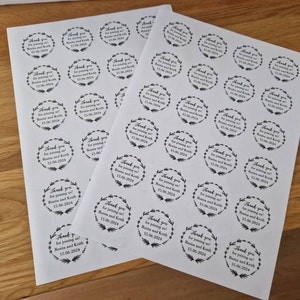 Thank you
for joining us!
Busta and Keith
15.06.2024